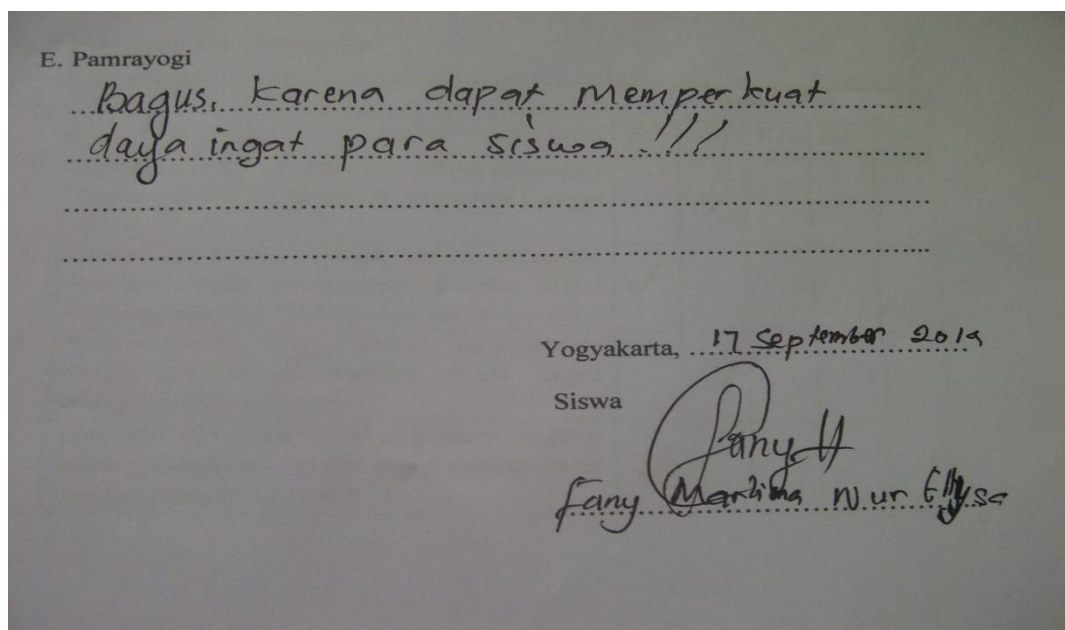 E. Pamrayogi
Bagus, karena dapat memperkuat
daya ingat para siswa !!!
Yogyakarta, 17 September 2014
Siswa
Fany
Fany Nur Ellysa